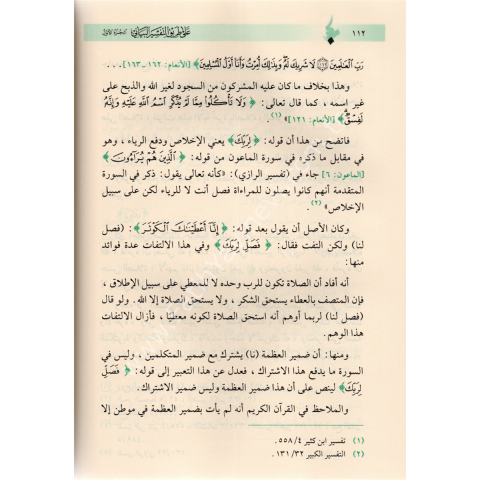 ١١٢ على طريق التفسير البياني الجزء الأول
رَبِّ الْعَالَمِينَ ﴿١٦٢﴾ لَا شَرِيكَ لَهُ وَبِذَلِكَ أُمِرْتُ وَأَنَا أَوَّلُ الْمُسْلِمِينَ ﴾ [الأنعام: ١٦٢-١٦٣]. . .
وهذا بخلاف ما كان عليه المشركون من السجود لغير الله والذبح على
غير اسمه، كما قال تعالى: ﴿ وَلَا تَأْكُلُوا مِمَّا لَمْ يُذْكَرِ اسْمُ اللَّهِ عَلَيْهِ وَإِنَّهُ
لَفِسْقٌ ﴾ [الأنعام: ١٢١]»(١).
فاتضح من هذا أن قوله: ﴿ لِرَبِّكَ ﴾ يعني الإخلاص ودفع الرياء، وهو
في مقابل ما ذكره في سورة الماعون من قوله: ﴿ الَّذِينَ هُمْ يُرَاءُونَ ﴾
[الماعون: ٦] جاء في (تفسير الرازي): «كأنه تعالى يقول: ذكر في السورة
المتقدمة أنهم كانوا يصلون للمراءاة فصل أنت لا للرياء لكن على سبيل
الإخلاص»(٢).
وكان الأصل أن يقول بعد قوله: ﴿ إِنَّا أَعْطَيْنَاكَ الْكَوْثَرَ ﴾: (فصل
لنا) ولكن التفت فقال: ﴿ فَصَلِّ لِرَبِّكَ ﴾ وفي هذا الالتفات عدة فوائد
منها:
أنه أفاد أن الصلاة تكون للرب وحده لا للمعطي على سبيل الإطلاق،
فإن المتصف بالعطاء يستحق الشكر، ولا يستحق الصلاة إلا الله. ولو قال
(فصل لنا) لربما أوهم أنه استحق الصلاة لكونه معطيًا، فأزال الالتفات
هذا الوهم.
ومنها: أن ضمير العظمة (نا) يشترك مع ضمير المتكلمين، وليس في
السورة ما يدفع هذا الاشتراك، فعدل عن هذا التعبير إلى قوله: ﴿ فَصَلِّ
لِرَبِّكَ ﴾ لينص على أن هذا ضمير العظمة وليس ضمير الاشتراك.
والملاحظ في القرآن الكريم أنه لم يأت بضمير العظمة في موطن إلا
(١) تفسير ابن كثير ٥٥٨/٤.
(٢) التفسير الكبير ١٣١/٣٢.